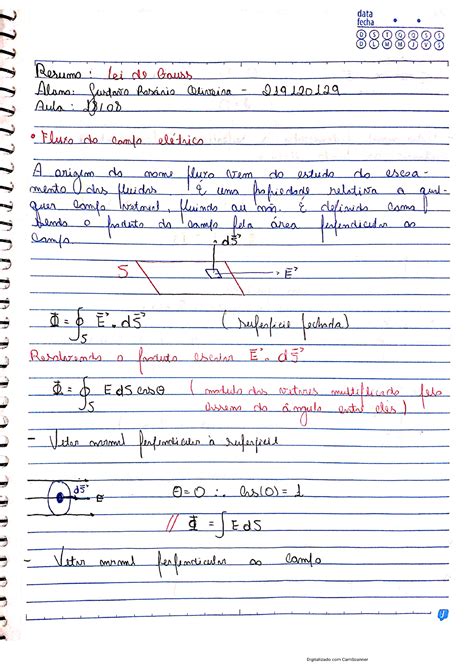 data
fecha
D S T Q Q S S
D L M M J V S
Resumo : Lei de Gauss
Aluno: Gustavo Rosário Oliveira - 219120129
Aula : 18/08
• Fluxo do campo elétrico
A origem do nome fluxo vem do estudo do escoa-
mento dos fluidos. É uma propriedade relativa a qual-
quer campo vetorial, fluindo ou não. É definido como
sendo o produto do campo pela área perpendicular ao
campo.
dS⃗
S
E⃗
Φ = ∮S E⃗ . dS⃗ ( superfície fechada)
Resolvendo o produto escalar E⃗ . dS⃗
Φ = ∮S E dS cosθ ( modulo dos vetores multiplicado pelo
cosseno do ângulo entre eles)
- Vetor normal perpendicular à superfície
dS⃗ E⃗
θ = 0 ∴ cos(0) = 1
// Φ = ∫ E dS
- Vetor normal perpendicular ao campo
Digitalizado com CamScanner